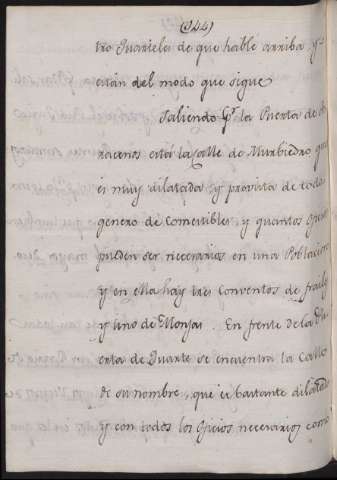 (144)
tro Quarteles de que hablé arriba y
están del modo que sigue
Saliendo pr. la Puerta de
racenos está la Calle de Murbiedro que
es muy dilatada y provista de todo
genero de Comestibles, y quantos Oficios
pueden ser necesarios en una Poblacion
y en ella hay tres Conventos de frailes
y uno de Monjas. En frente de la Pu
erta de Quarte se encuentra la Calle
de su nombre, que es bastante dilatada
y con todos los Oficios necesarios como